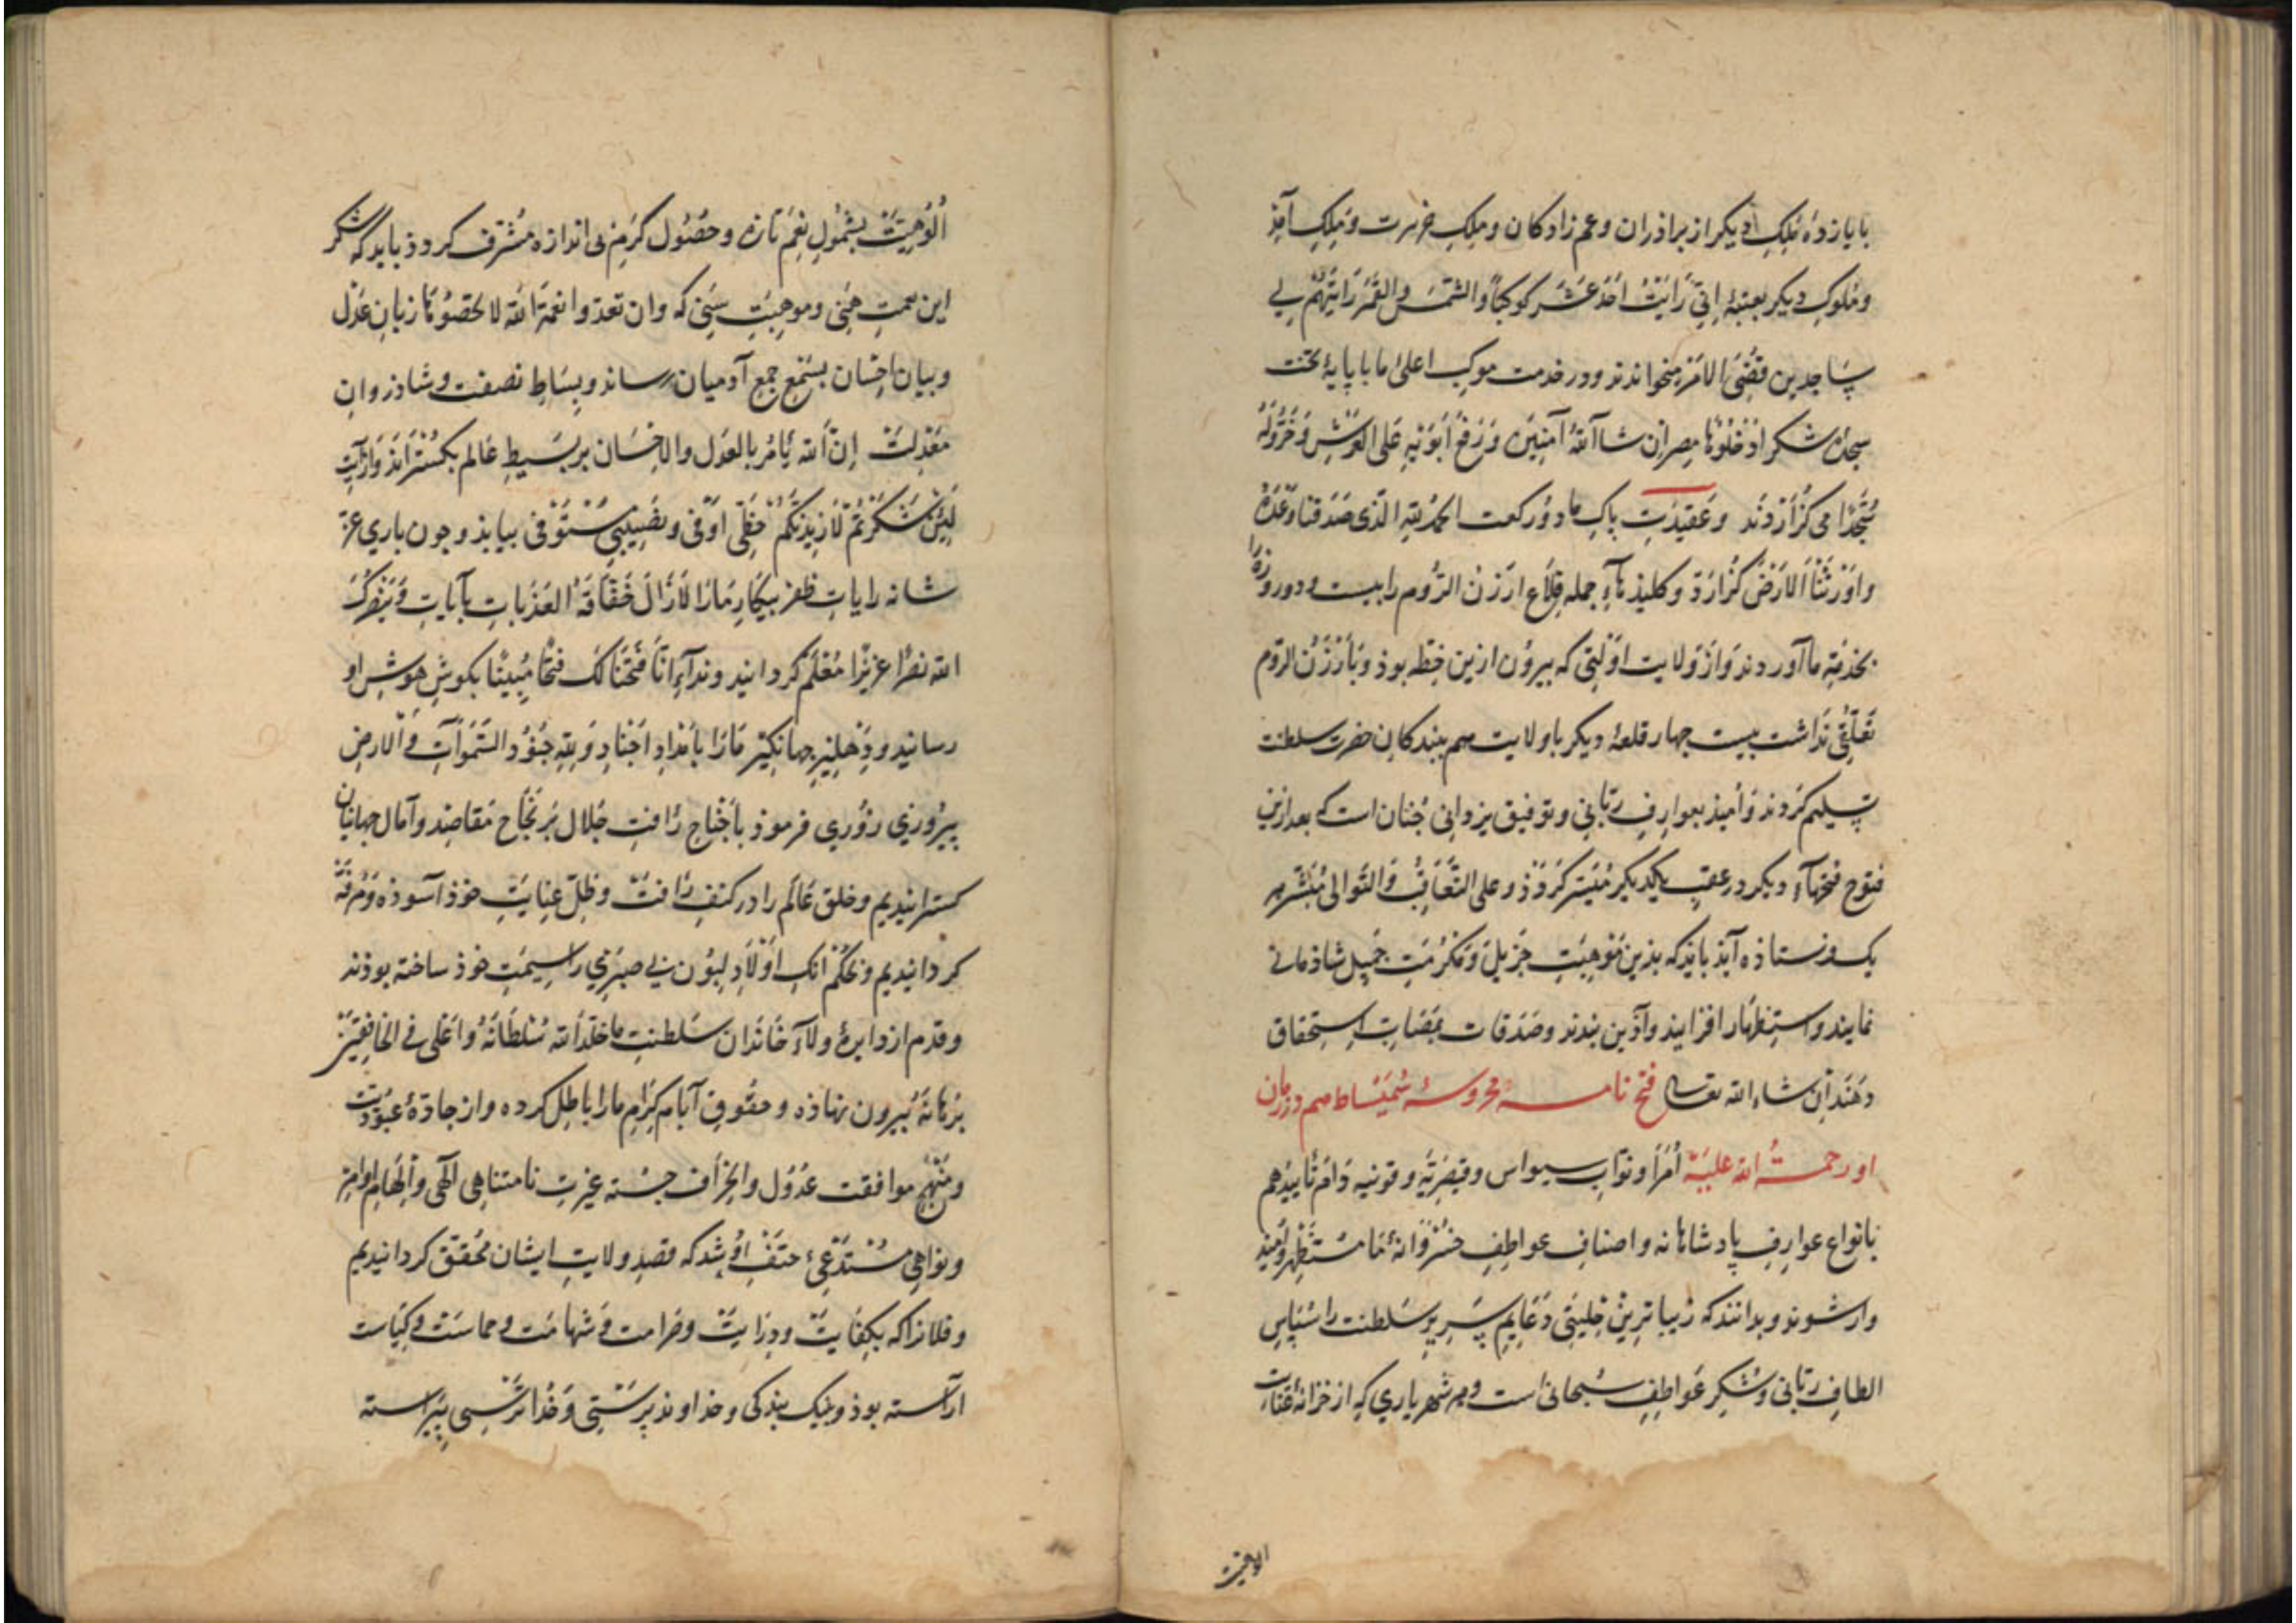 با یازده ملک دیکر از براذران وعم زادکان وملک خربرت وملک آمِذ
وملوک دیکر بعتبهٔ اِنّی رَاَیتُ اَحَدَ عَشَرَ کوکباً والشّمسَ والقَمَرَ رَاَیتَهُم لی
سَاجدین قُضِیَ الاَمر میخواندند ودر خدمت موکب اعلیٰ ما با پایهٔ تخت
سجدهٔ شکر اُدْخُلُوْا مصر اِن شاَ اللهُ آمِنینَ وَرَفَعَ اَبَوَیْهِ عَلی العَرْشِ وَخَرُّوا لَهُ
سُجَّدًا می کزاردند وعقیدت پاک ما دو رکعت الحمد لله الّذی صَدَقَنَا وَعْدَهُ
واَوْرَثَنَا الاَرْضَ کزارد وکلیدهآءِ جمله قِلاَع ارزن الرّوم را بیست ودو روزه را
بخدمت ما آوردند واز ولایت اولتی که بیرون ازین خطه بوذ وبا ارزن الروم
تعلقی نداشت بیست چهار قلعهٔ دیکر با ولایت هم ببندکان حضرت سلطنت
تسلیم کردند وامید بعوارف ربّانی وتوفیق یزدانی چنان است که بعد ازین
فتوح فتحهآءِ دیکر در عقب یکدیکر میسّر کردد وعلی التّعاقُب والتّوالی مُبَشّر هر
یک فرستاذه آید باید که بذین موهبت جزیل ومکرمت جمیل شاذمانی
نمایند واستظهار افزایند وآذین بندند وصدقات بمصابّ استحقاق
دهند اِن شاء الله تعالی فتح نامه محروسهٔ سُمَیساط هم در زمان
او رحمـة الله علیه اُمَراَ ونوّاب سیواس وقیصریّه وقونیه دَامَ تَاییدُهم
بانواع عوارف پادشاهانه واصناف عواطف خسروانهٔ ما مُستظهر واُمید
وار شوند وبدانند که زیباترین حِلیتی دعایم سریر سلطنت را سپاس
الطاف ربّانی وشکر عواطف سبحانی است وهر شهریاری که از خزانهٔ عنایت
الوهیت
اُلوهیّت بشمول نِعَم تازه وحصُول کَرَم بی اندازه مُشرّف کردد باید که شکر
این نعمتِ هَنی وموهِبَتِ سَنی که وان تعدّوا نعمة الله لا تحصُوهَا زبانِ عَدْل
وبیان احسان بسَمْعِ جمع آدمیان رساند وبساط نصفت وشادروان
مَعْدِلَت اِنّ الله یَأمُرُ بالعَدل والاحسَان بر بسیطِ عالم بکستراند واز آیت
لَئِن شَکَرْتُم لَاَزیدَنَّکُم حظّی اَوفی ونصیبی مستوفی بیابد وچون باری عزّ
شانه رایات ظفر پیکارِ مارا لاَزَالَ خَفَّاقَة العَذَبات بآیات وَیَنْصُرَکَ
الله نصرًا عزیزًا مُعْلَم کردانید وندآءِ اِنّا فَتَحْنَا لَکَ فَتحًا مُبِینًا بکوش هوش او
رسانید ودهلیز جهانکیر مارا بامداد اجناد وَلِلّهِ جُنُوْد السَّمَوَاتِ وَالارضِ
پیروزی روزی فرمود باَجناحِ رافت جلال بر نجاح مقاصد وآمال جهانیان
کسترانیدیم وخلق عالم را در کنف رافت وظلّ عنایت خوذ آسوذه ومرفّه
کردانیدیم وبحکم آنک اولاَدِ لیون بی صبری را سیمت خوذ ساخته بوذند
وقدم از دایرهٔ ولآءِ خاندان سلطنت ما خلّد الله سُلطَانَهُ واَعلی فی الخافقین
بُرْهَانَهُ بیرون نهاذه وحقوق آباءِ کرام مارا باطل کرده واز جادّهٔ عبودیت
ومنهج موافقت عدول وانحراف جسته غیرت نامتناهی الهی واِلهَام اوامر
ونواهی مُستدعی حتف او شد که قصد ولایت ایشان محقّق کردانیدیم
وفلانرا که بکفایت ودرایت وصرامت وشهامت وحماست وکیاست
آراسته بوذ وبنیک بندکی وخداوند پرستی وخدا ترسی پیراسته